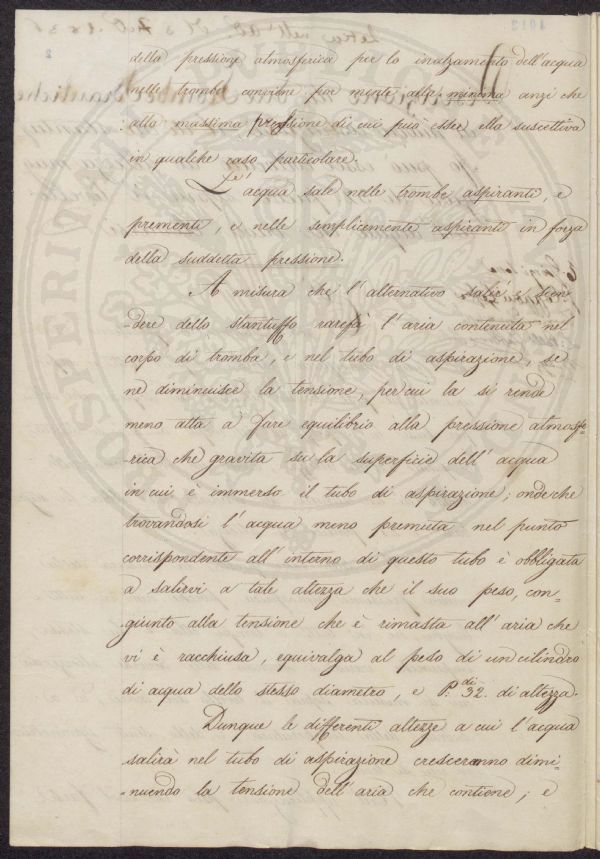 della pressione atmosferica per lo inalzamento dell'acqua
nelle trombe conviene por mente alla minima anzi che
alla massima pressione di cui può esser ella suscettiva
in qualche caso particolare.
L'acqua sale nelle trombe aspiranti, e
prementi, e nelle semplicemente aspiranti in forza
della suddetta pressione.
A misura che l'alternativo salir e scen-
-dere dello stantuffo rarefà l'aria contenuta nel
corpo di tromba, e nel tubo di aspirazione, se
ne diminuisce la tensione, per cui la si rende
meno atta a fare equilibrio alla pressione atmosfe-
-rica che gravita su la superficie dell'acqua
in cui è immerso il tubo di aspirazione; onde che
trovandosi l'acqua meno premuta nel punto
corrispondente all'interno di questo tubo è obbligata
a salirvi a tale altezza che il suo peso, con=
giunto alla tensione che è rimasta all'aria che
vi è racchiusa, equivalga al peso di un cilindro
di acqua dello stesso diametro, e P.di 32. di altezza.
Dunque le differenti altezze a cui l'acqua
salirà nel tubo di aspirazione cresceranno dimi-
-nuendo la tensione dell'aria che contiene; e